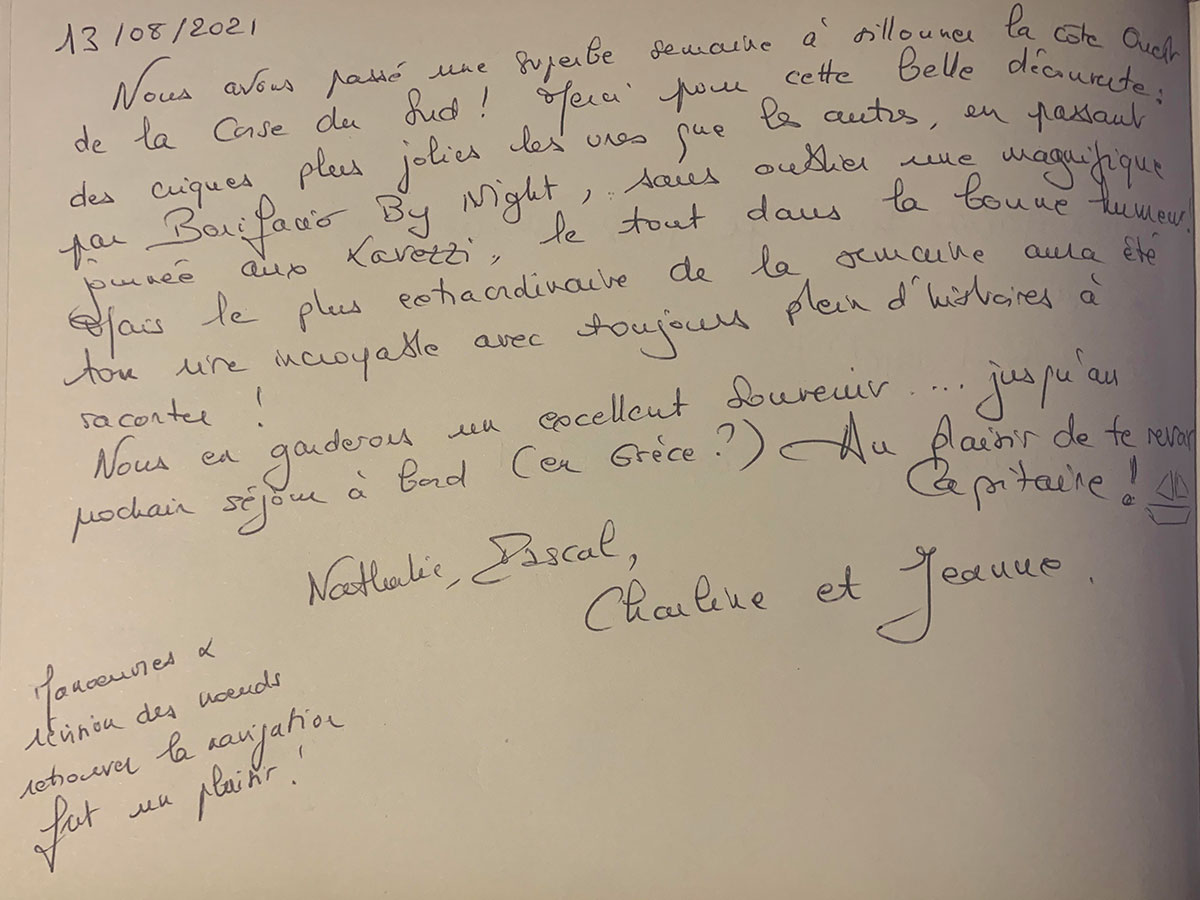 13/08/2021
Nous avons passé une superbe semaine à sillonner la côte Ouest
de la Corse du Sud ! Merci pour cette belle découverte :
des criques plus jolies les unes que les autres, en passant
par Bonifacio By Night, sans oublier une magnifique
journée aux Lavezzi, le tout dans la bonne humeur !
Mais le plus extraordinaire de la semaine aura été
ton rire incroyable avec toujours plein d'histoires à
raconter !
Nous en garderons un excellent souvenir .... jusqu'au
prochain séjour à bord (en Grèce ?) Au plaisir de te revoir
Capitaine !
Nathalie, Pascal,
Charline et Jeanne.
Manoeuvres &
révision des noeuds
retrouver la navigation
fut un plaisir !